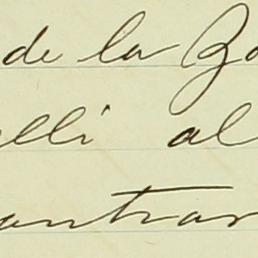 de la Bo
elli al
antrar